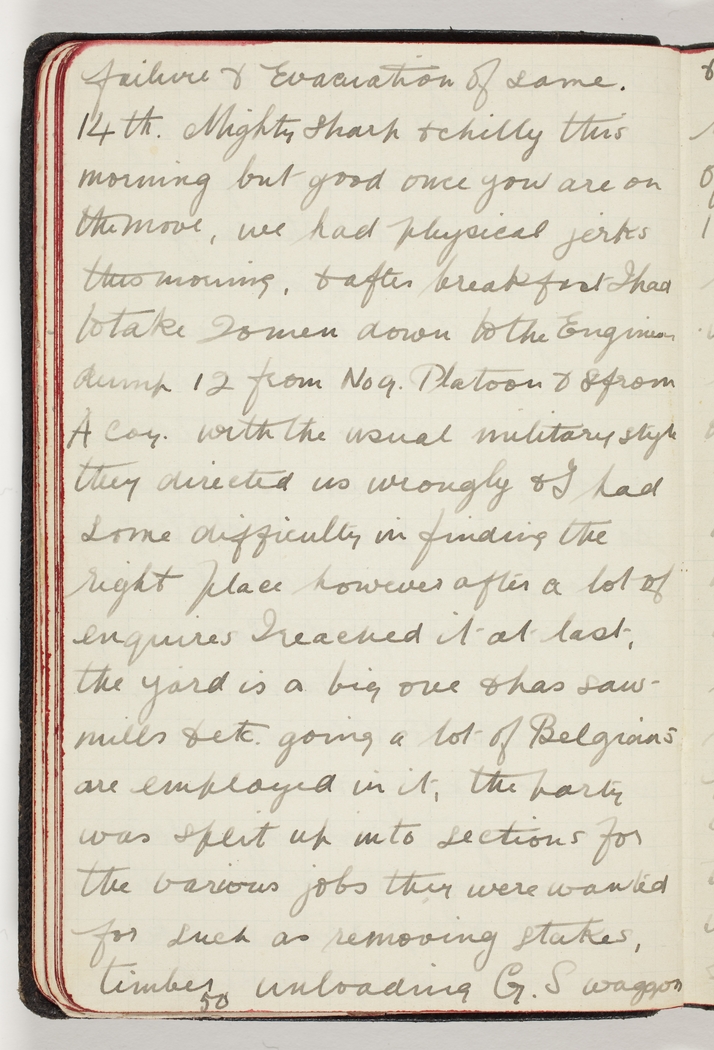 failure & Evacuation of same.
14th. Mighty sharp & chilly this
morning but good once you are on
the move, we had physical jerks
this morning, & after breakfast I had
to take 20 men down to the Engineer
dump 12 from No 9. Platoon & 8 from
A Coy. with the usual military style
they directed us wrongly & I had
some difficulty in finding the
right place however after a lot of
enquires I reached it at last,
the yard is a big one & has saw-
mills & etc. going a lot of Belgians
are employed in it, the party
was split up into sections for
the various jobs they were wanted
for such as removing stakes,
timber, unloading G.S waggon
50